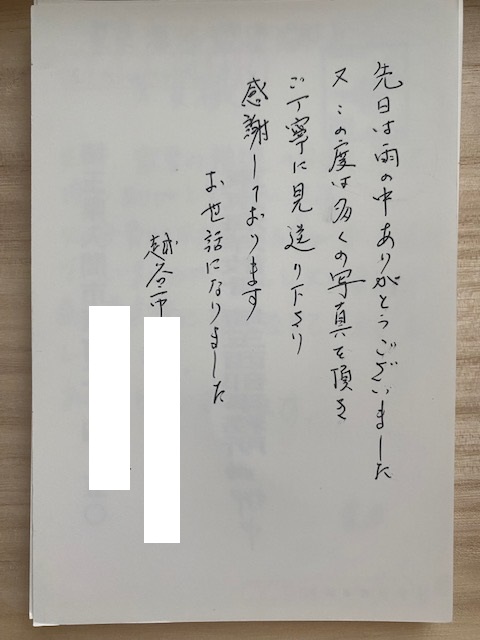 先日は雨の中ありがとうございました
又この度は多くの写真を頂き
ご丁寧に見送り下さり
感謝しております
お世話になりました
越谷市